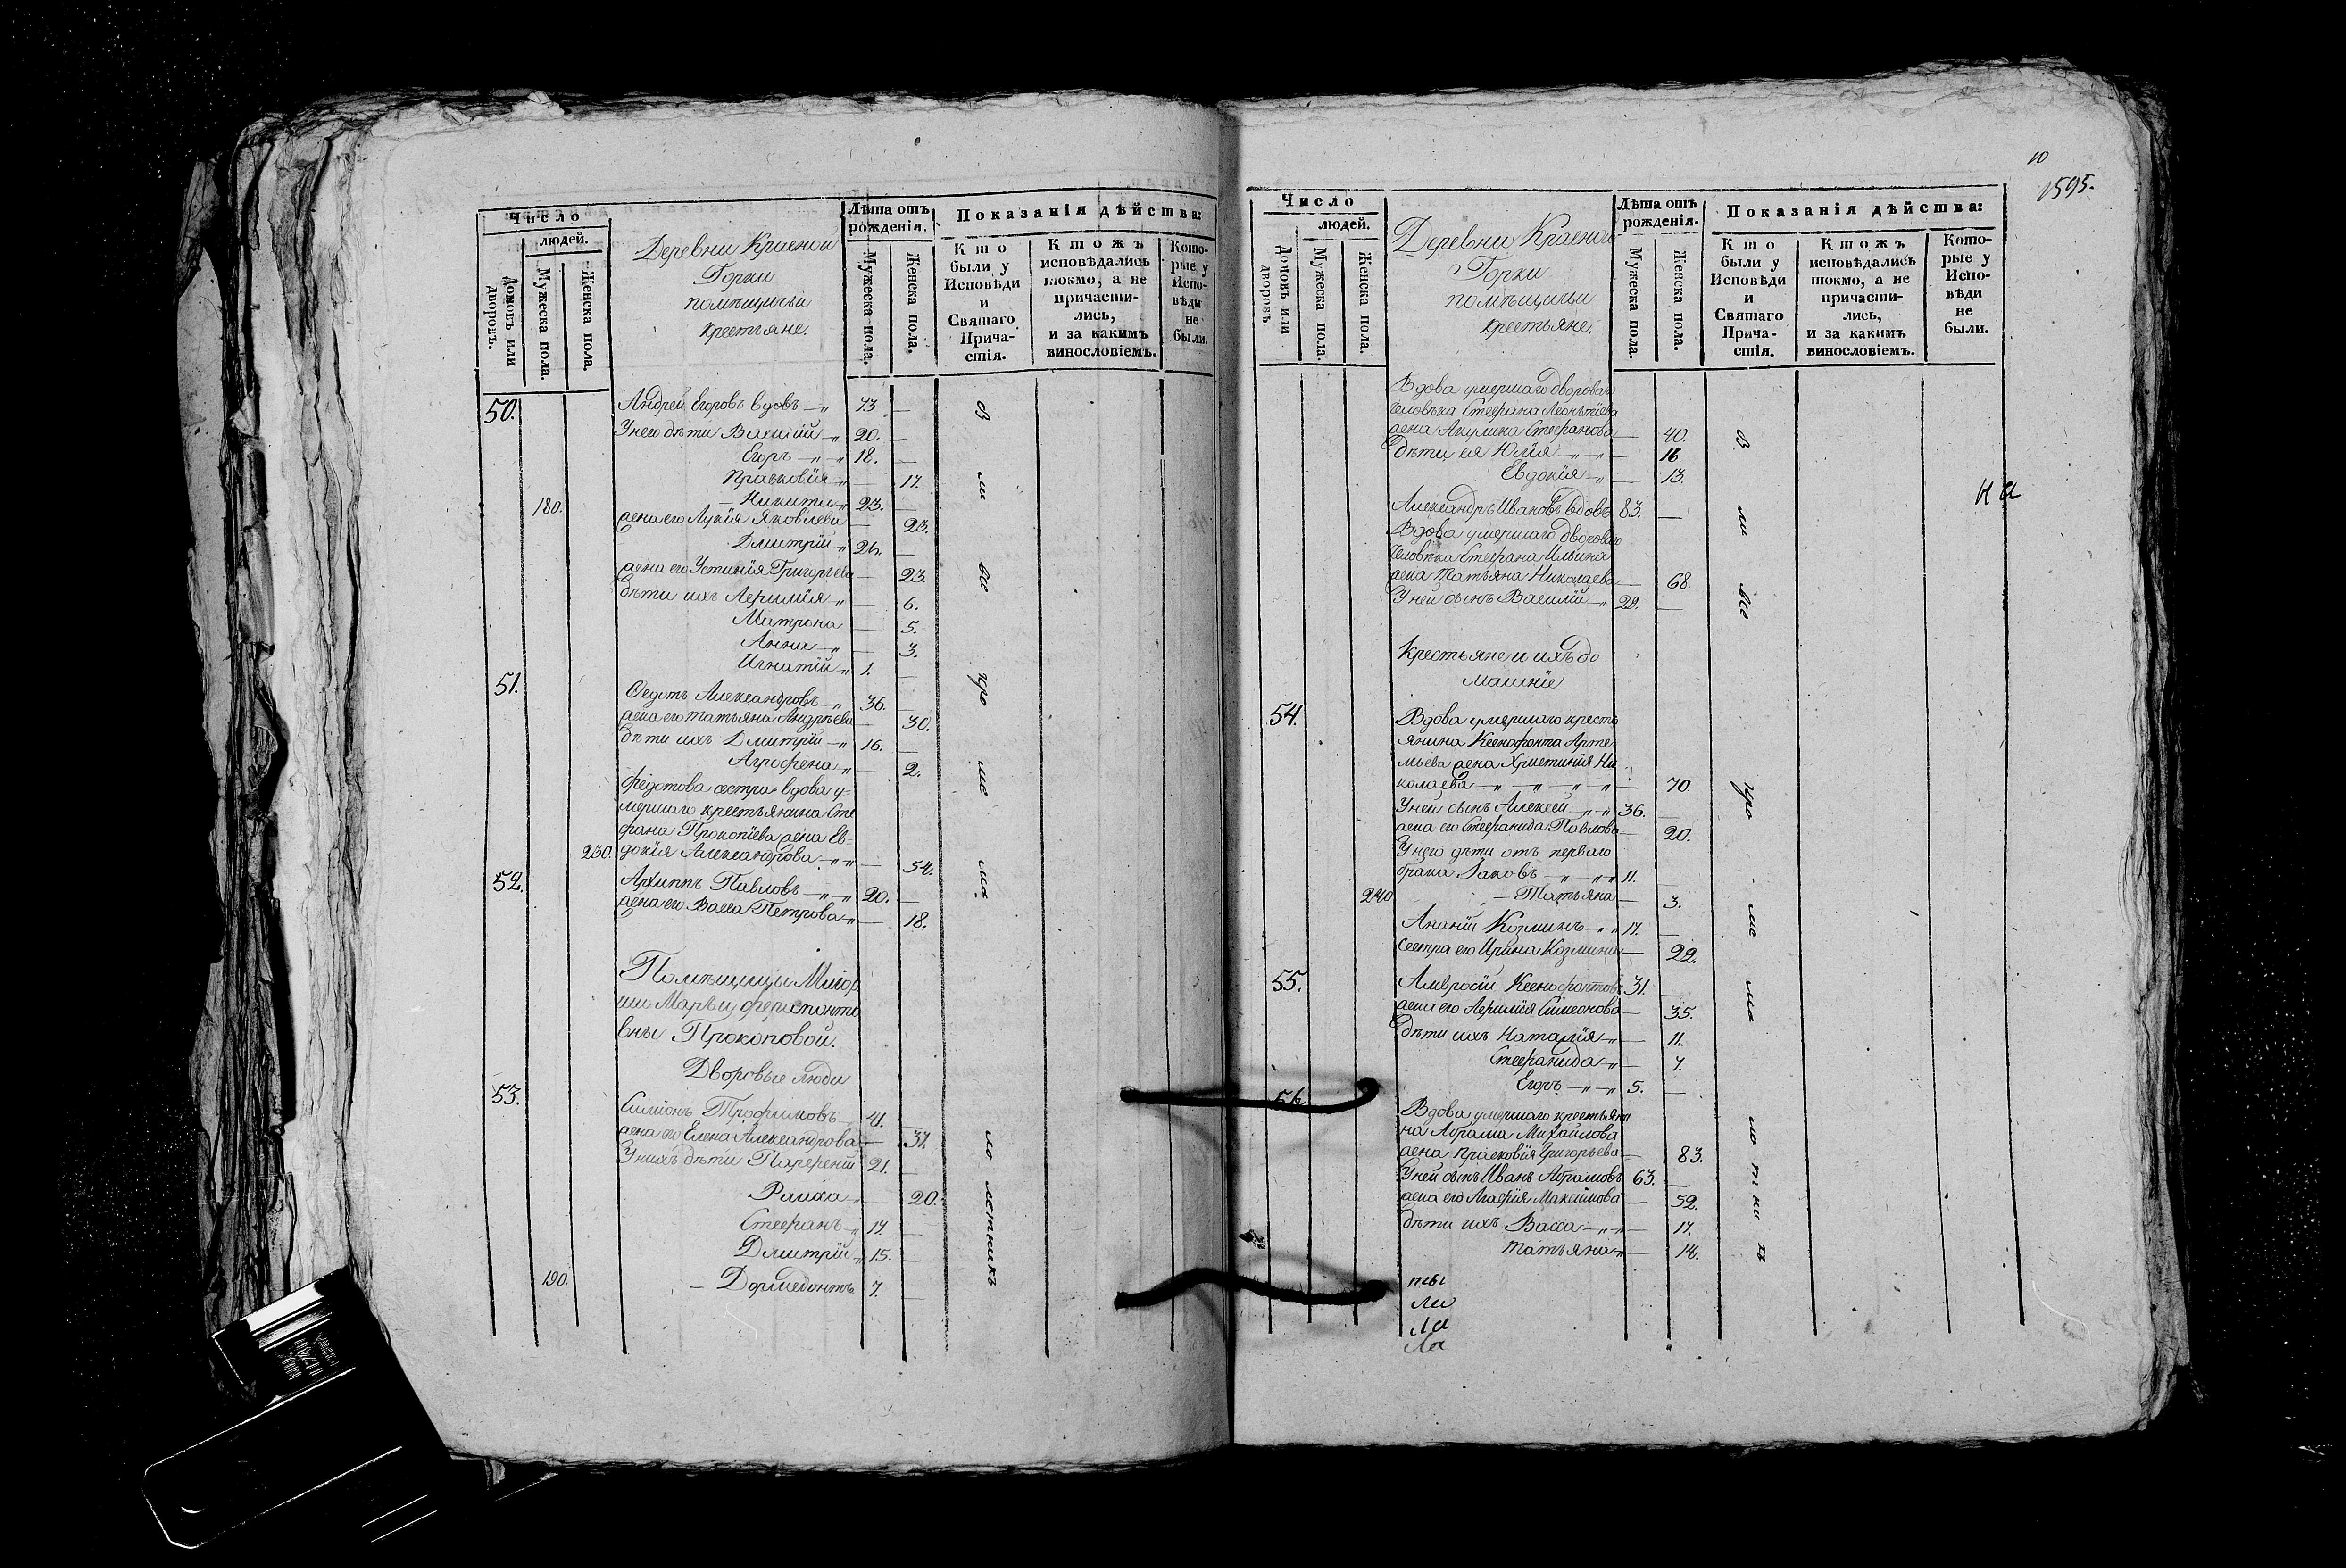 10
1595.
Число
людей.
Домовъ или дворовъ.
Мужеска пола.
Женска пола.
Деревни Красной
Горки
помѣщичьи
крестьяне.
Лѣта отъ рожденія.
Мужеска пола.
Женска пола.
Показанія дѣйства:
Кто были у Исповѣди и Святаго Прича-стія.
Ктожъ исповѣдались токмо, а не причасти-лись, и за какимъ винословіемъ.
Кото-рые у Испо-вѣди не были.
50. Андрей Егоровъ вдовъ 73
У него дѣти Василій 20.
Егоръ 18.
Прасковія 17.
180. Никита 23.
жена его Лукія Яковлева 23.
Дмитрій
жена его Устинія Григорьева 23.
дѣти ихъ 6.
Матрона 5.
Анна 3.
Игнатій 1.
51. Федотъ Александровъ 36.
жена его Татьяна Андреева 30.
дѣти ихъ Дмитрій 16.
Агрофена 2.
Федотова сестра вдова у-
мершаго крестьянина Сте
фана Прокопіева жена Ев-
230. докія Александрова 54.
52. Архиппъ Павловъ 20.
жена его Васса Петрова 18.
Помѣщицы Маіор
ши Марьи Ферапонто
вны Прокоповой.
Дворовые люди
53. Симіонъ Трофимовъ 41.
жена его Елена Александрова 37.
У нихъ дѣти Парфеній 21.
20.
Стефанъ 17.
Дмитрій 15.
190. Дормедонтъ 7.
Число
людей.
Домовъ или дворовъ
Мужеска пола.
Женска пола.
Деревни Красной
Горки
помѣщичьи
крестьяне.
Лѣта отъ рожденія.
Мужеска пола.
Женска пола.
Показанія дѣйства:
Кто были у Исповѣди и Святаго Прича-стія.
Ктожъ исповѣдались токмо, а не причасти-лись, и за какимъ винословіемъ.
Кото-рые у Испо-вѣди не были.
Вдова умершаго дворова
человѣка Стефана Леонтіева
жена Акулина Стефанова 40.
дѣти ея Юлія 16
Евдокія 13.
Александръ Ивановъ вдовъ 83.
Вдова умершаго дворова
человѣка Стефана Ильина
жена Татьяна Николаева 68.
У ней сынъ Василій 29.
Крестьяне и ихъ до
машніе
54. Вдова умершаго кресть
янина Ксенофонта Арте
мьева жена Христинія Ни
колаева 70
У ней сынъ Алексей 36.
жена его Стефанида Павлова 20.
У него дѣти отъ перваго
брака Іаковъ 11.
240 Татьяна 3.
Ананій Козминъ 17.
сестра его Ирина Козмина 22.
55. Амвросій Ксенофонтовъ 31.
жена его Симеонова 35.
дѣти ихъ Наталія 11.
Стефанида 7.
Егоръ 5.
56. Вдова умершаго крестьяни
на Абрама Михайлова
жена Прасковія Григорьева 83.
У ней сынъ Иванъ Абрамовъ 63.
жена его Агафія Максимова 52.
дѣти ихъ Васса 17.
Татьяна 14.